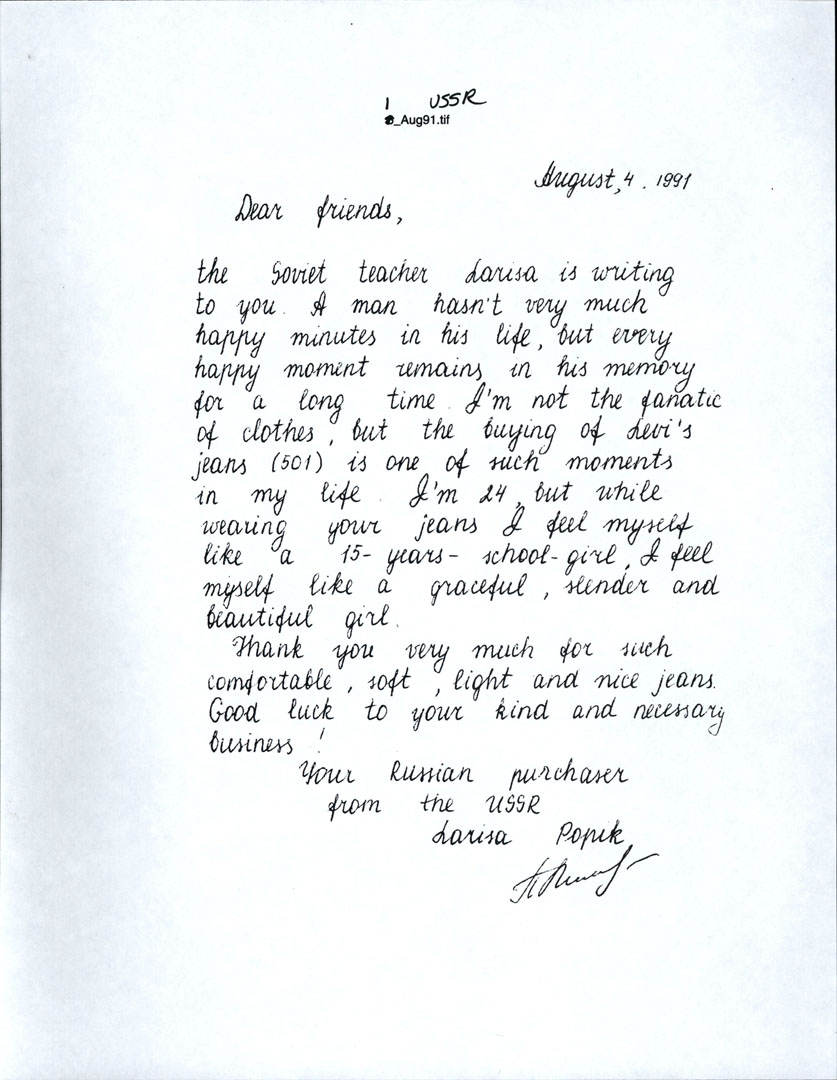 1 USSR
_Aug91.tif
August, 4. 1991
Dear friends,
the Soviet teacher Larisa is writing
to you. A man hasn't very much
happy minutes in his life, but every
happy moment remains in his memory
for a long time. I'm not the fanatic
of clothes, but the buying of Levi's
jeans (501) is one of such moments
in my life. I'm 24, but while
wearing your jeans I feel myself
like a 15-years-school-girl, I feel
myself like a graceful, slender and
beautiful girl.
Thank you very much for such
comfortable, soft, light and nice jeans.
Good luck to your kind and necessary
business!
Your Russian purchaser
from the USSR
Larisa Popik